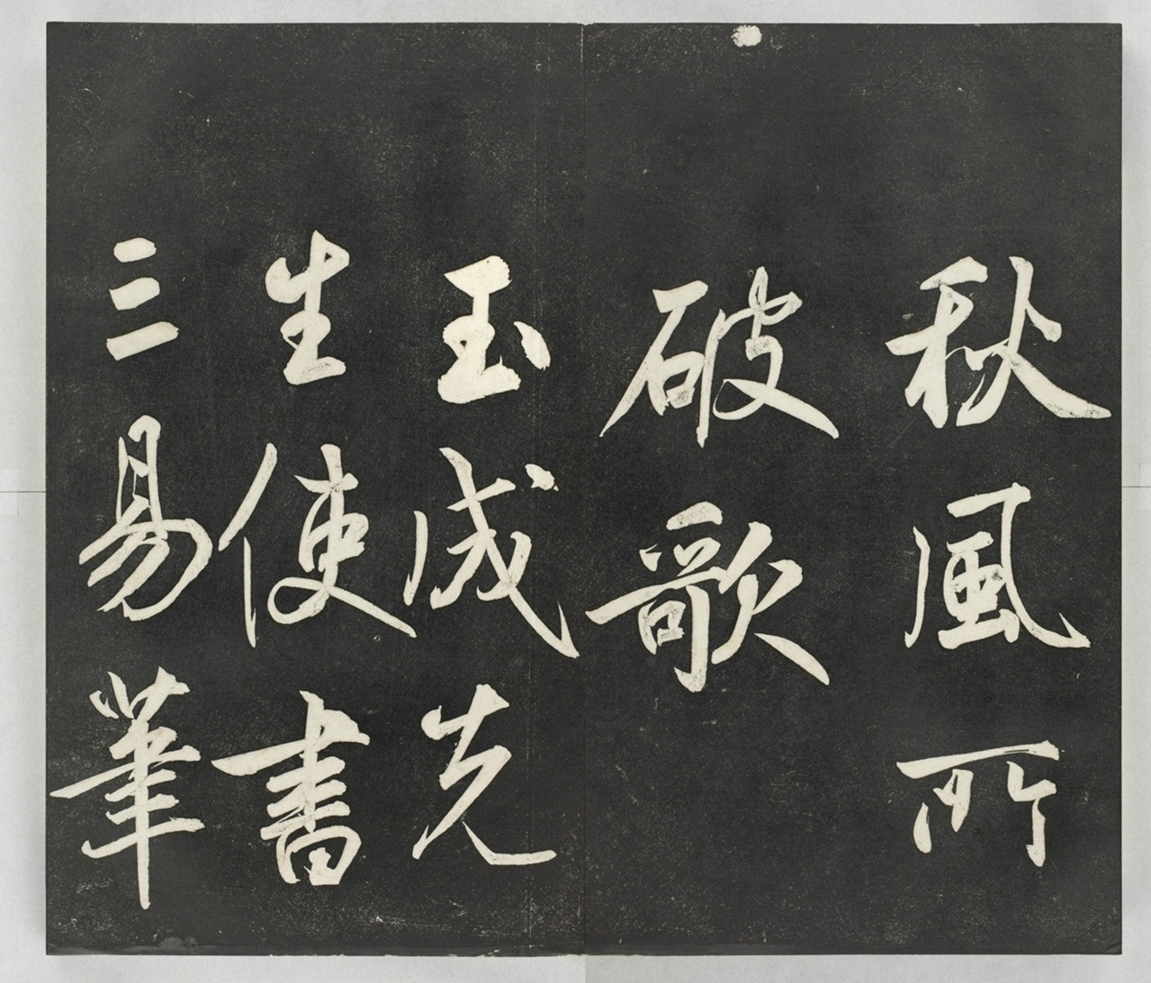 秋風所
破歌
玉成先
生使書
三易筆